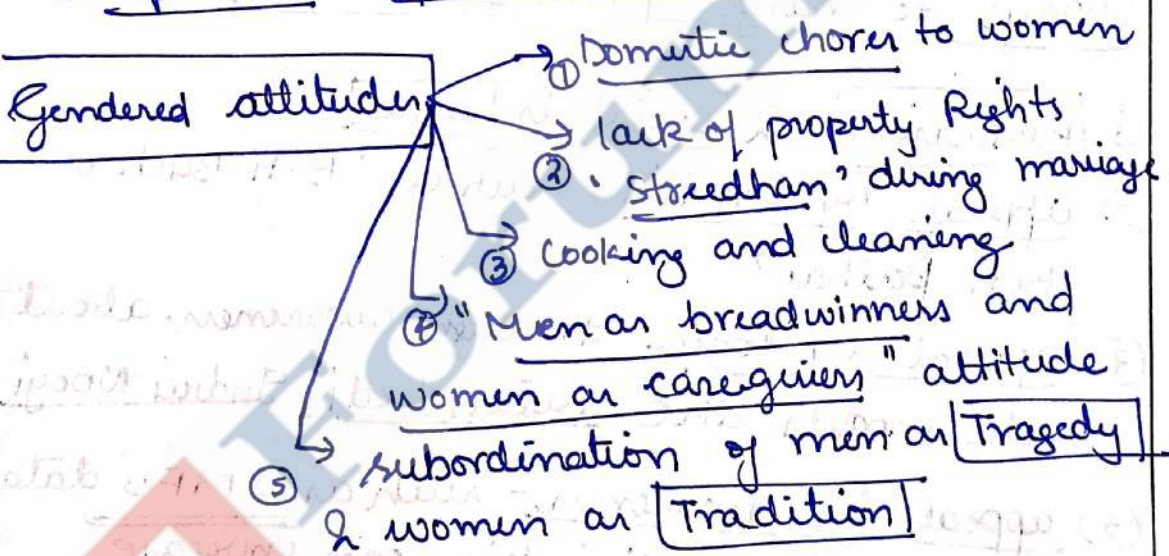 Gendered attitudes
① Domestic chores to women
② lack of property Rights
'Streedhan' during marriage
③ Cooking and cleaning
④ "Men as breadwinners and
women as caregivers" attitude
⑤ subordination of men as Tragedy
& women as Tradition
Forum